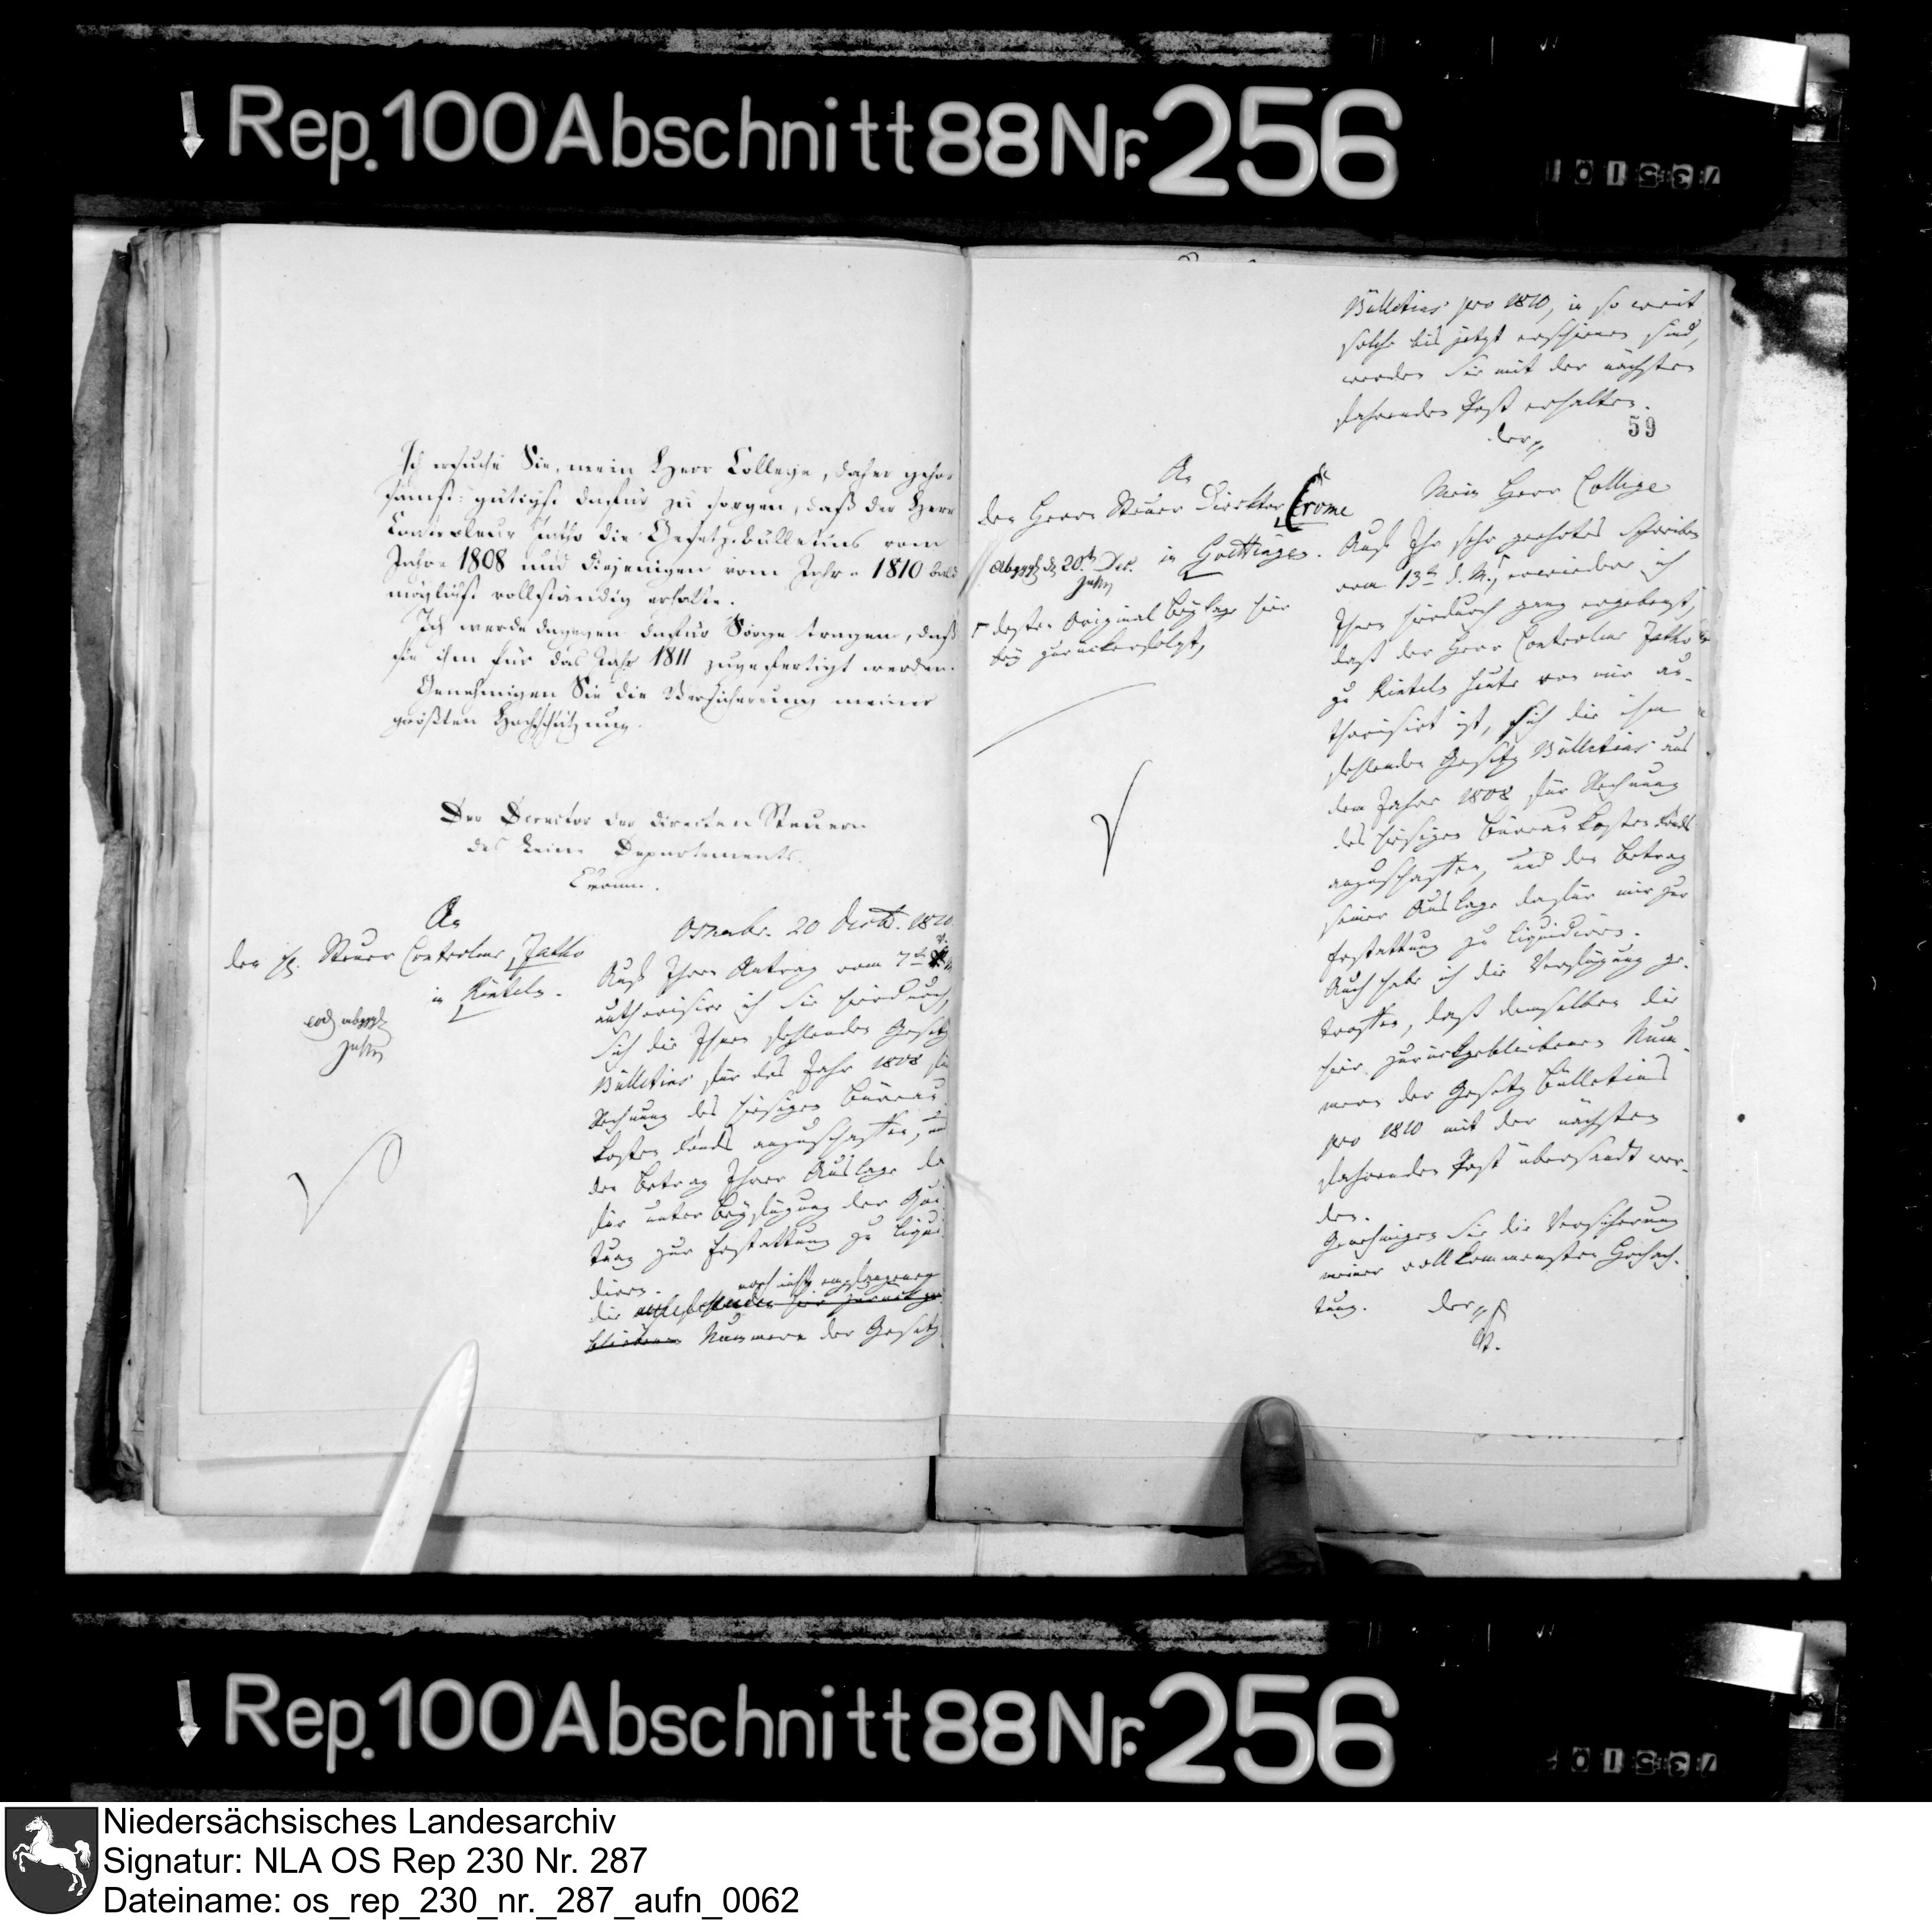 Rep. 100 Abschnitt 88 Nr. 256
Ich ersuche Sie, mein Herr College, daher gehor-
samst gütigst dafür zu sorgen, daß der Herr
Controleur Jatho die Gesetz-Bülletins vom
Jahre 1808 und diejenigen vom Jahre 1810 bald
möglichst vollständig erhalte.
Ich werde dagegen dafür Sorge tragen, daß
sie ihm für das Jahr 1811 zugefertigt werden.
Genehmigen Sie die Versicherung meiner
größten Hochschätzung.
Der Director der directen Steuern
des Leine Departements.
Crome.
An
den H. Steuer Controleur Jatho
in Rinteln.
eod abgegb
Osnabr. 20 Decbr. 1810.
Auf Ihren Antrag vom 7ten
authorisire ich Sie hierdurch,
sich die Ihnen fehlenden Gesetz
Bülletins für das Jahr 1808 für
Rechnung des hiesigen Büreau
Kosten Fonds anzuschaffen, und
den Betrag Ihrer Auslage da
für unter Beyfügung der Qui
tung zur Erstattung zu liqui
diren.
noch nicht empfangenen
die hier zurück ge
bliebenen Nummern der Gesetz
Bülletins pro 1810, in so weit
solche bis jetzt erschienen sind,
werden Sie mit der nächsten
fahrenden Post erhalten.
der
59
An
den Herrn Steuer Direktor Crome
in Goettingen.
Abgegb d 20ten Dec.
dessen Original Beylage hier
bey zurückerfolgt,
Mein Herr College
Auf Ihr sehr geehrtes Schreiben
vom 13ten d. M., erwiedere ich
Ihnen hierdurch ganz ergebenst,
daß der Herr Controleur Jatho
zu Rinteln heute von mir au-
thorisirt ist, sich die ihm
fehlenden Gesetz Bülletins aus
dem Jahre 1808 für Rechnung
des hiesigen Büreau Kosten Fonds
anzuschaffen, und den Betrag
seiner Auslage dafür mir zur
Erstattung zu liquidiren.
Auch habe ich die Verfügung ge-
troffen, daß demselben die
hier zurückgebliebenen Num-
mern der Gesetz Bülletins
pro 1810 mit der nächsten
fahrenden Post übersandt wer-
den.
Genehmigen Sie die Versicherung
meiner vollkommensten Hochach-
tung.
der
Rep. 100 Abschnitt 88 Nr. 256
Niedersächsisches Landesarchiv
Signatur: NLA OS Rep 230 Nr. 287
Dateiname: os_rep_230_nr._287_aufn_0062